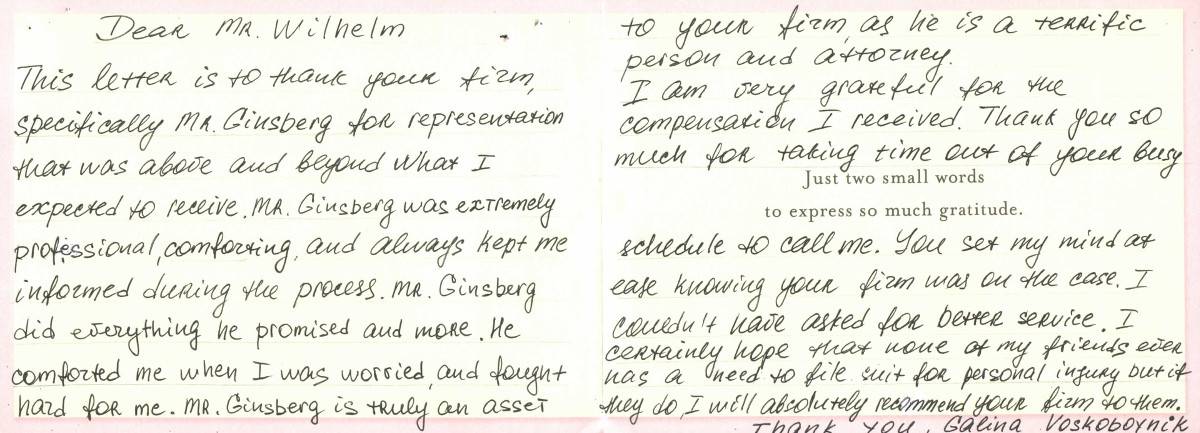 Dear Mr. Wilhelm
This letter is to thank your firm,
specifically Mr. Ginsberg for representation
that was above and beyond what I
expected to receive. Mr. Ginsberg was extremely
professional, comforting, and always kept me
informed during the process. Mr. Ginsberg
did everything he promised and more. He
comforted me when I was worried, and fought
hard for me. Mr. Ginsberg is truly an asset
to your firm, as he is a terrific
person and attorney.
I am very grateful for the
compensation I received. Thank you so
much for taking time out of your busy
Just two small words
to express so much gratitude.
schedule to call me. You set my mind at
ease knowing your firm was on the case. I
couldn't have asked for better service. I
certainly hope that none of my friends ever
has a need to file suit for personal injury but if
they do, I will absolutely recommend your firm to them.
Thank you, Galina Voskoboynik